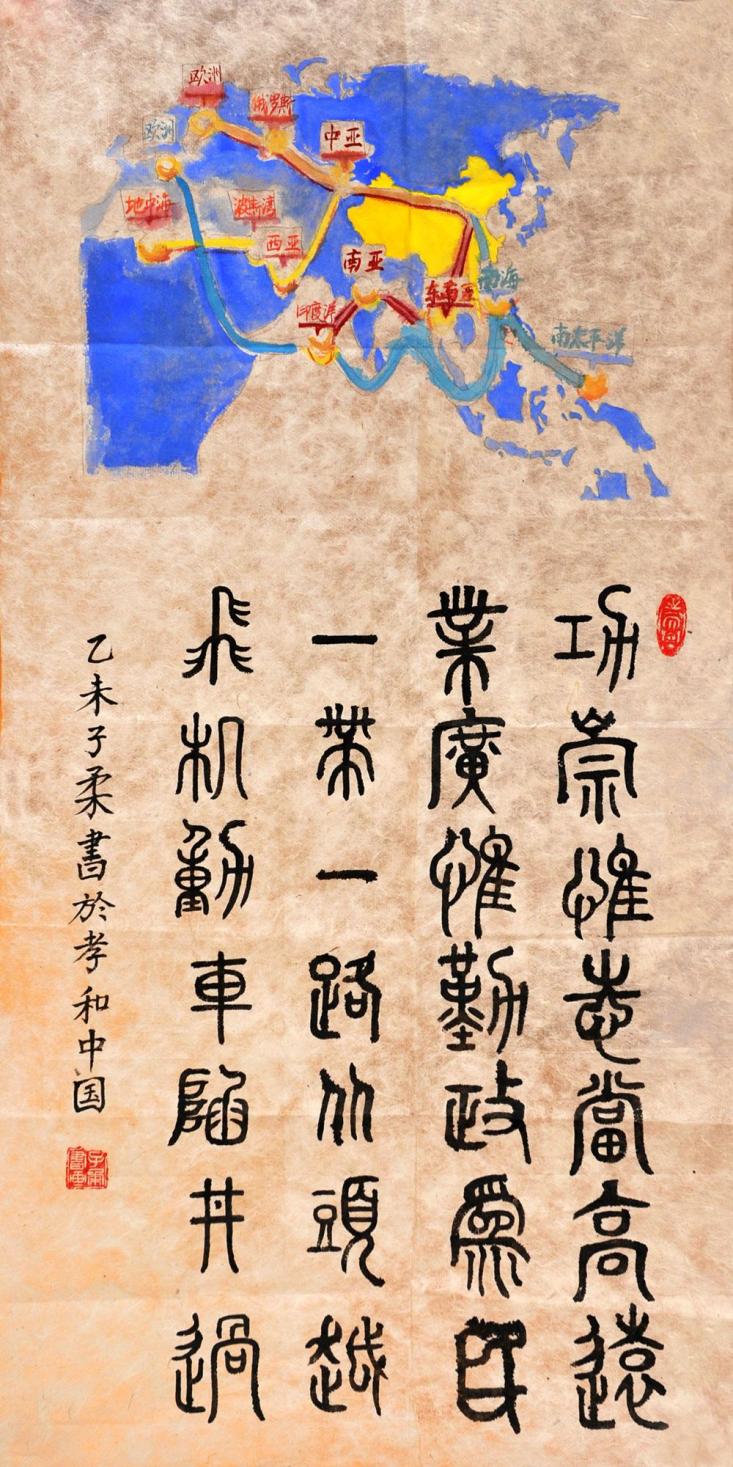 欧洲
俄罗斯
中亚
欧洲
地中海
波斯湾
西亚
南亚
东南亚
南海
印度洋
南太平洋
功崇惟志當高遠
業廣惟勤政爲民
一帶一路从頭越
飛机動車過
乙未子柔書於孝和中国
子柔書画